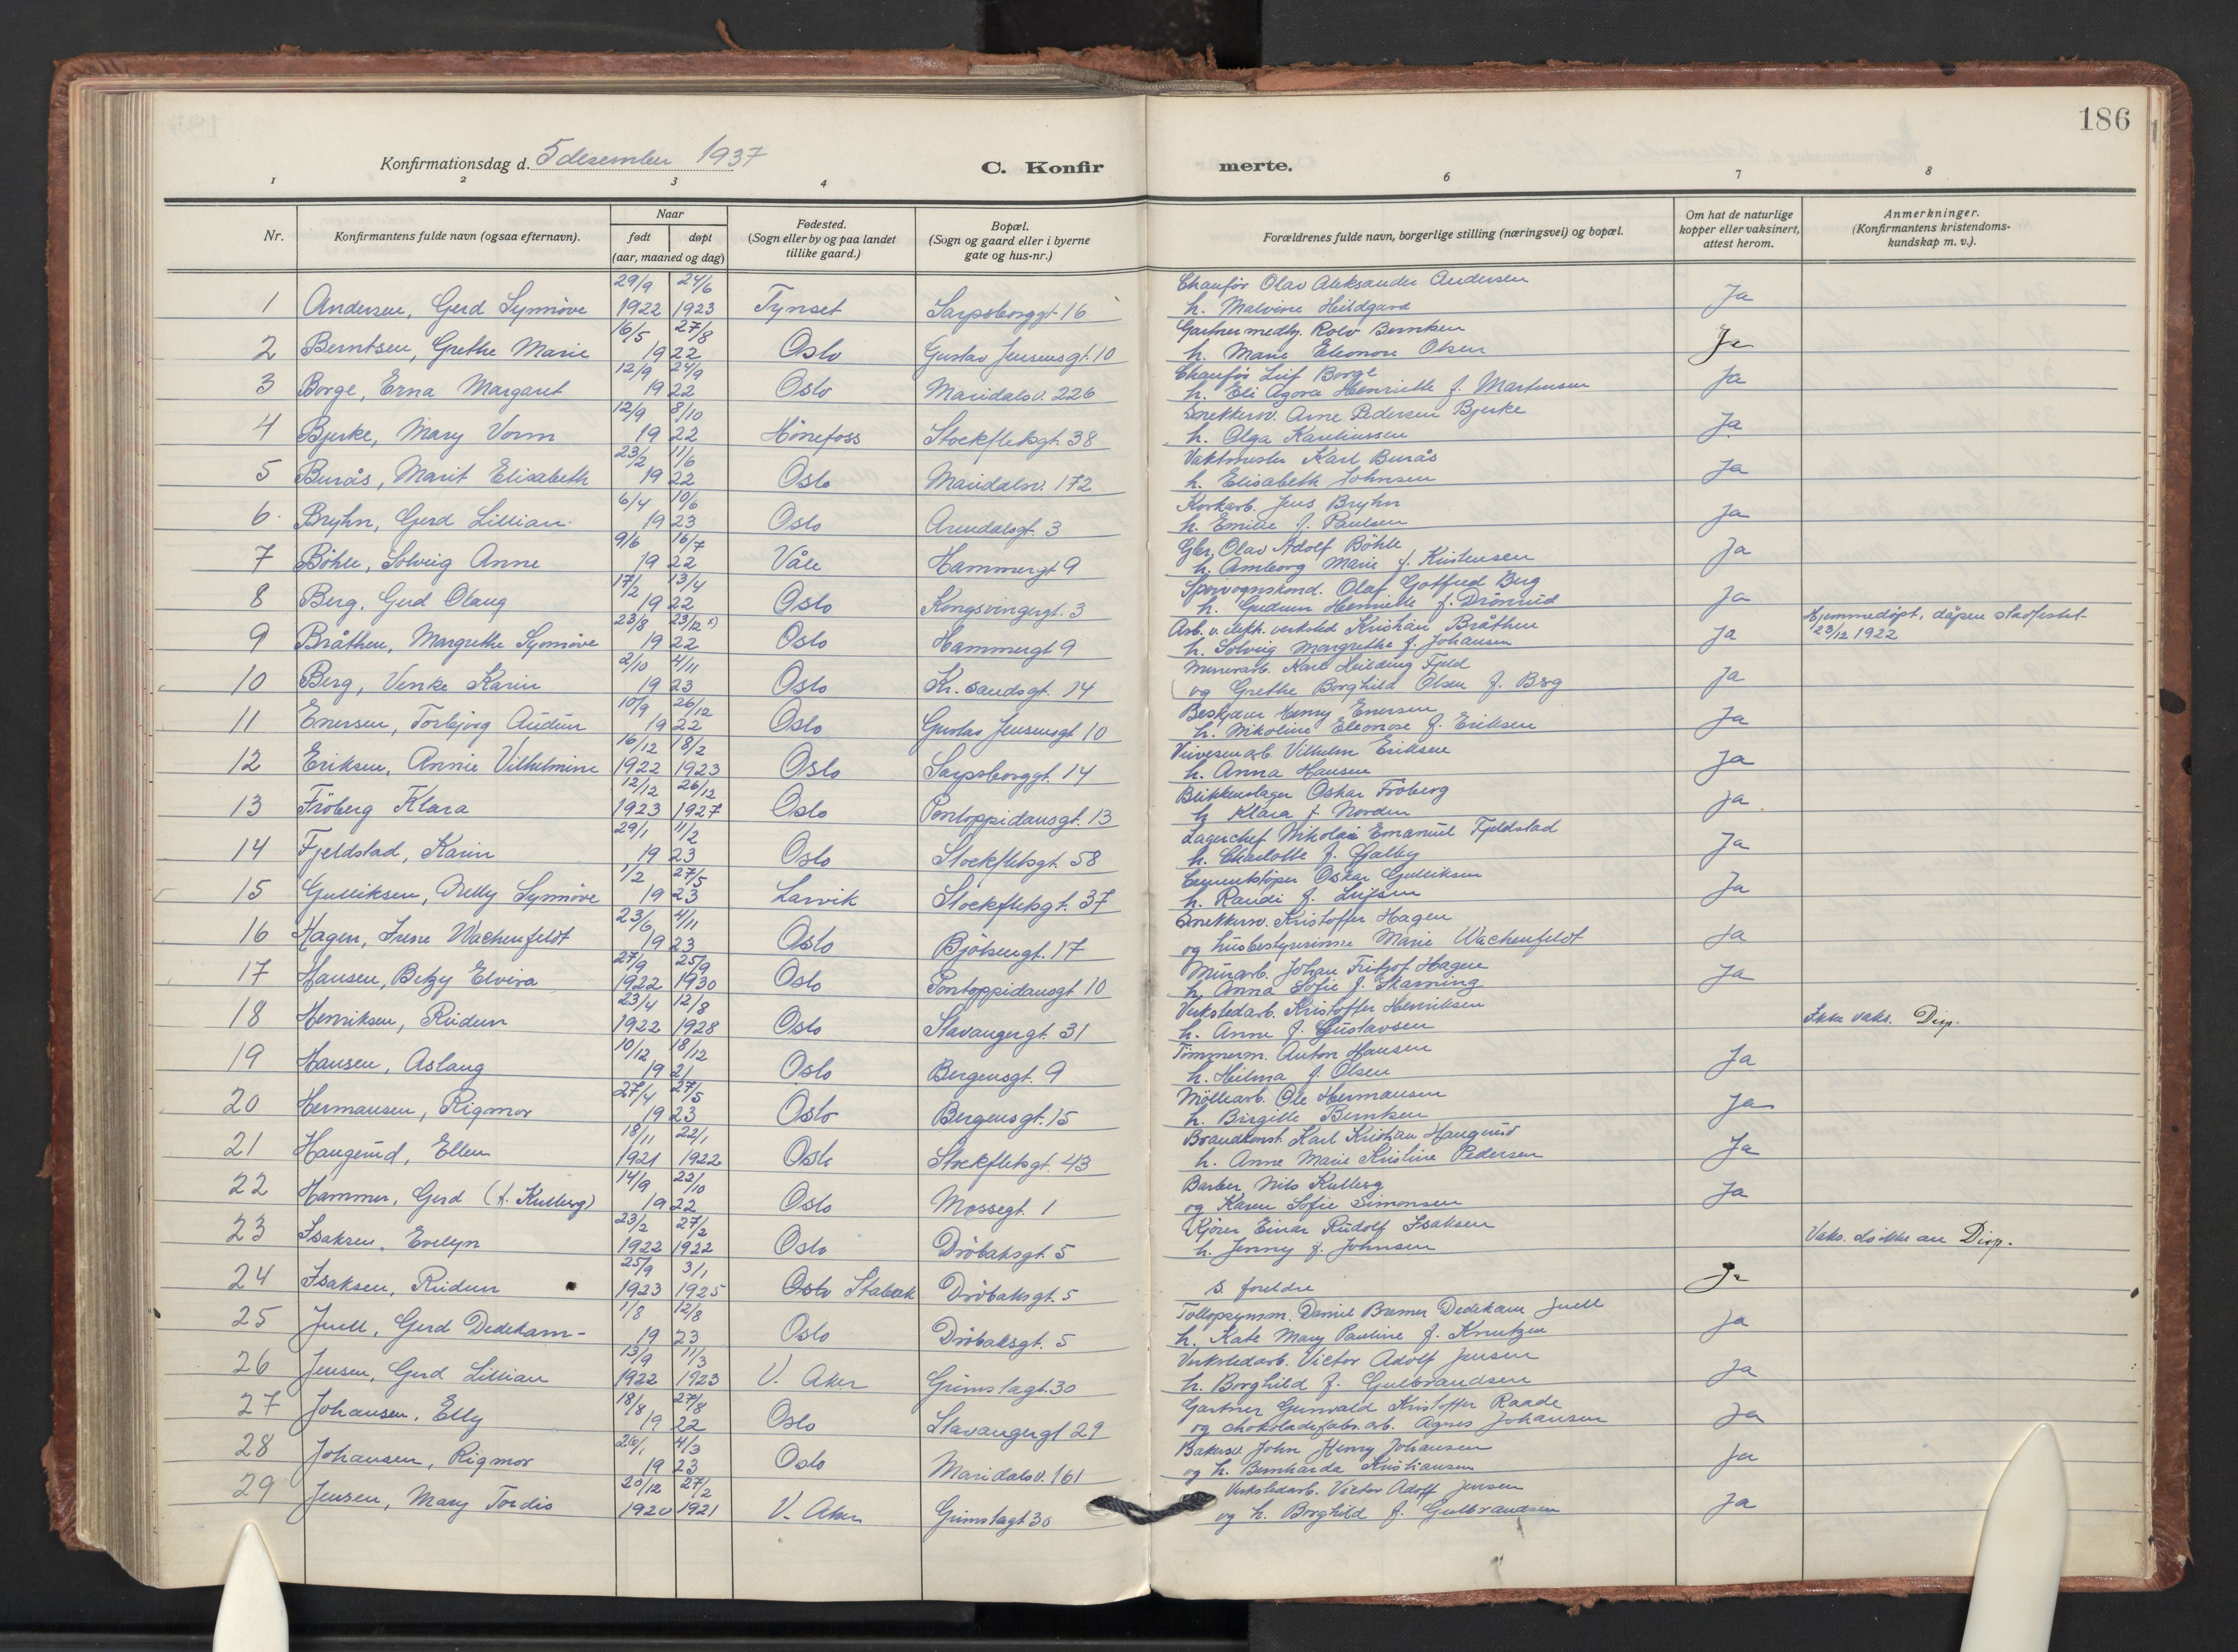 186
Konfirmationsdag d. 5 desember 1937
C. Konfirmerte.
1 2 3 4 6 7 8
Nr.
Konfirmantens fulde navn (ogsaa efternavn).
Naar
født døpt
(aar, maaned og dag)
Fødested.
(Sogn eller by og paa landet
tillike gaard.)
Bopæl.
(Sogn og gaard eller i byerne
gate og hus-nr.)
Forældrenes fulde navn, borgerlige stilling (næringsvei) og bopæl.
Om hat de naturlige
kopper eller vaksinert,
attest herom.
Anmerkninger.
(Konfirmantens kristendoms-
kundskap m. v.).
29/9 24/6 Chauför Olav Aleksander Andersen
1 Andersen, Gerd Synnöve 1922 1923 Tynset Sarpsborggt. 16 h. Malvine Heildgard Ja
16/5 27/8 Gartnermedhj. Rolv Berntsen
2 Berntsen, Grethe Marie 1922 Oslo Gustav Jensensgt. 10 h. Marie Eleonore Olsen Ja
12/9 24/9 Chauför Leif Borge
3 Borge, Erna Margaret 1922 Oslo Maridalsv. 226 h. Eli Agora Henriette f. Martinsen Ja
12/9 8/10 Snekkersv. Arne Pedersen Bjerke
4 Bjerke, Mary Vorm 1922 Hönefoss Stockfletsgt. 38 h. Olga Kareliussen Ja
23/2 11/6 Vaktmester Karl Burås
5 Burås, Marit Elisabeth 1922 Oslo Maridalsv. 172 h. Elisabeth Johnsen Ja
6/4 10/6 Korkarb. Jens Bryhn
6 Bryhn, Gerd Lillian 1923 Oslo Arendalsgt. 3 h. Emilie f. Paulsen Ja
9/6 16/7 Gbr. Olav Adolf Böhle
7 Böhle, Solveig Anne 1922 Våle Hammergt 9 h. Amborg Marie f. Kristensen Ja
17/2 13/4 Sporvognskond. Olaf Gotfred Berg
8 Berg, Gerd Olaug 1922 Oslo Kongsvingergt. 3 h. Gudrun Henriette f. Drönnid Ja
23/8 23/12 x) Arb. v. elektr. verksted Kristian Bråthen Hjemmedöpt, dåpen stadfestet
9 Bråthen, Margrethe Synnöve 1922 Oslo Hammergt 9 h. Solveig Margrethe f. Johansen Ja 23/12 1922
2/10 4/11 Murerarb. Karl Heilding Fjeld
10 Berg, Venke Karin 1923 Oslo Kr. sandsgt. 14 og Grethe Borghild Olsen f. Berg Ja
10/9 26/12 Beskjæn Henry Enersen
11 Enersen, Torbjörg Audun 1922 Oslo Gustav Jensensgt 10 h. Nikoline Eleonore f. Eriksen Ja
16/12 18/2 Veivesenarb. Vilhelm Eriksen
12 Eriksen, Annie Vilhelmine 1922 1923 Oslo Sarpsborggt. 14 h. Anna Hansen Ja
12/12 26/12 Blikkenslager Oskar Fröberg
13 Fröberg Klara 1923 1927 Oslo Pontoppidansgt. 13 h. Klara f. Norden Ja
29/1 11/2 Lagerchef Nikolai Emanuel Fjeldstad
14 Fjeldstad, Karin 1923 Oslo Stockfletsgt. 58 h. Charlotte f. Galby Ja
1/2 27/5 Cementstöper Oskar Gulliksen
15 Gulliksen, Nelly Synnöve 1923 Larvik Stockfletsgt. 37 h. Randi f. Leifsen Ja
23/6 4/11 Snekkersv. Kristoffer Hagen
16 Hagen, Irene Wachenfeldt 1923 Oslo Bjölsengt. 17 og husbestyrerinne Marie Wachenfeldt Ja
27/9 25/9 Murarb. Johan Fritjof Hagen
17 Hansen, Betzy Elvira 1922 1930 Oslo Pontoppidansgt 10 h. Anna Sofie f. Skarning Ja
23/4 12/8 Verkstedarb. Kristoffer Henriksen
18 Henriksen, Ruden 1922 1928 Oslo Stavangergt. 31 h. Anne f. Gustavsen Ikke vaks. Disp.
10/12 18/12 Tömmerm. Anton Hansen
19 Hansen, Aslaug 1921 Oslo Bergensgt. 9 h. Heilma f. Olsen Ja
27/4 27/5 Möllearb. Ole Hermansen
20 Hermansen, Rigmor 1923 Oslo Bergensgt. 15 h. Birgitte Berntsen Ja
18/11 22/1 Brandkonst. Karl Kristian Haugerud
21 Haugerud, Ellen 1921 1922 Oslo Stockfletsgt. 43 h. Anne Marie Kristine Pedersen Ja
14/9 22/10 Barber Nils Kulberg
22 Hammer, Gerd (f. Kulberg) 1922 Oslo Mossegt. 1 og Karen Sofie Simonsen Ja
23/2 27/2 Kjörer Einar Rudolf Isaksen
23 Isaksen, Evelyn 1922 1922 Oslo Dröbaksgt. 5 h. Jenny f. Johnsen Vaks. slo ikke an Disp.
25/9 3/1
24 Isaksen, Ruden 1923 1925 Oslo Stabæk Dröbaksgt. 5 s. foreldre Ja
1/8 12/8 Tollopsynsm. Daniel Bremer Dedekam Juell
25 Juell, Gerd Dedekam- 1923 Oslo Dröbaksgt. 5 h. Kate Mary Pauline f. Knutzen Ja
13/9 11/3 Verkstedarb. Victor Adolf Jensen
26 Jensen, Gerd Lillian 1922 1923 V. Aker Grimstagt. 30 h. Borghild f. Gulbrandsen Ja
18/8 27/8 Gartner Gunvald Kristoffer Raade
27 Johansen, Elly 1922 Oslo Stavangergt 29 og chokoladefabr.arb. Agnes Johansen Ja
26/1 4/3 Bakersv. John Henry Johansen
28 Johansen, Rigmor 1923 Oslo Maridalsv. 161 og h. Bernharda Kristiansen Ja
20/12 27/2 Verkstedarb. Victor Adolf Jensen
29 Jensen, Mary Tordis 1920 1921 V. Aker Grimstagt 30 og h. Borghild f. Gulbrandsen Ja